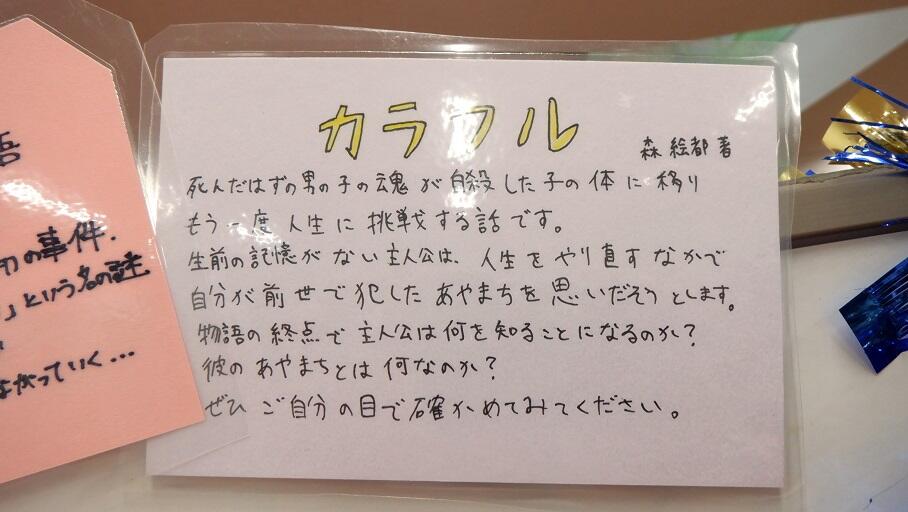 カラフル
森 絵都 著
死んだはずの男の子の魂が自殺した子の体に移り
もう一度人生に挑戦する話です。
生前の記憶がない主人公は、人生をやり直すなかで
自分が前世で犯したあやまちを思いだそうとします。
物語の終点で主人公は何を知ることになるのか?
彼のあやまちとは何なのか?
ぜひご自分の目で確かめてみてください。
の事件.
」という名の謎
ながっていく…